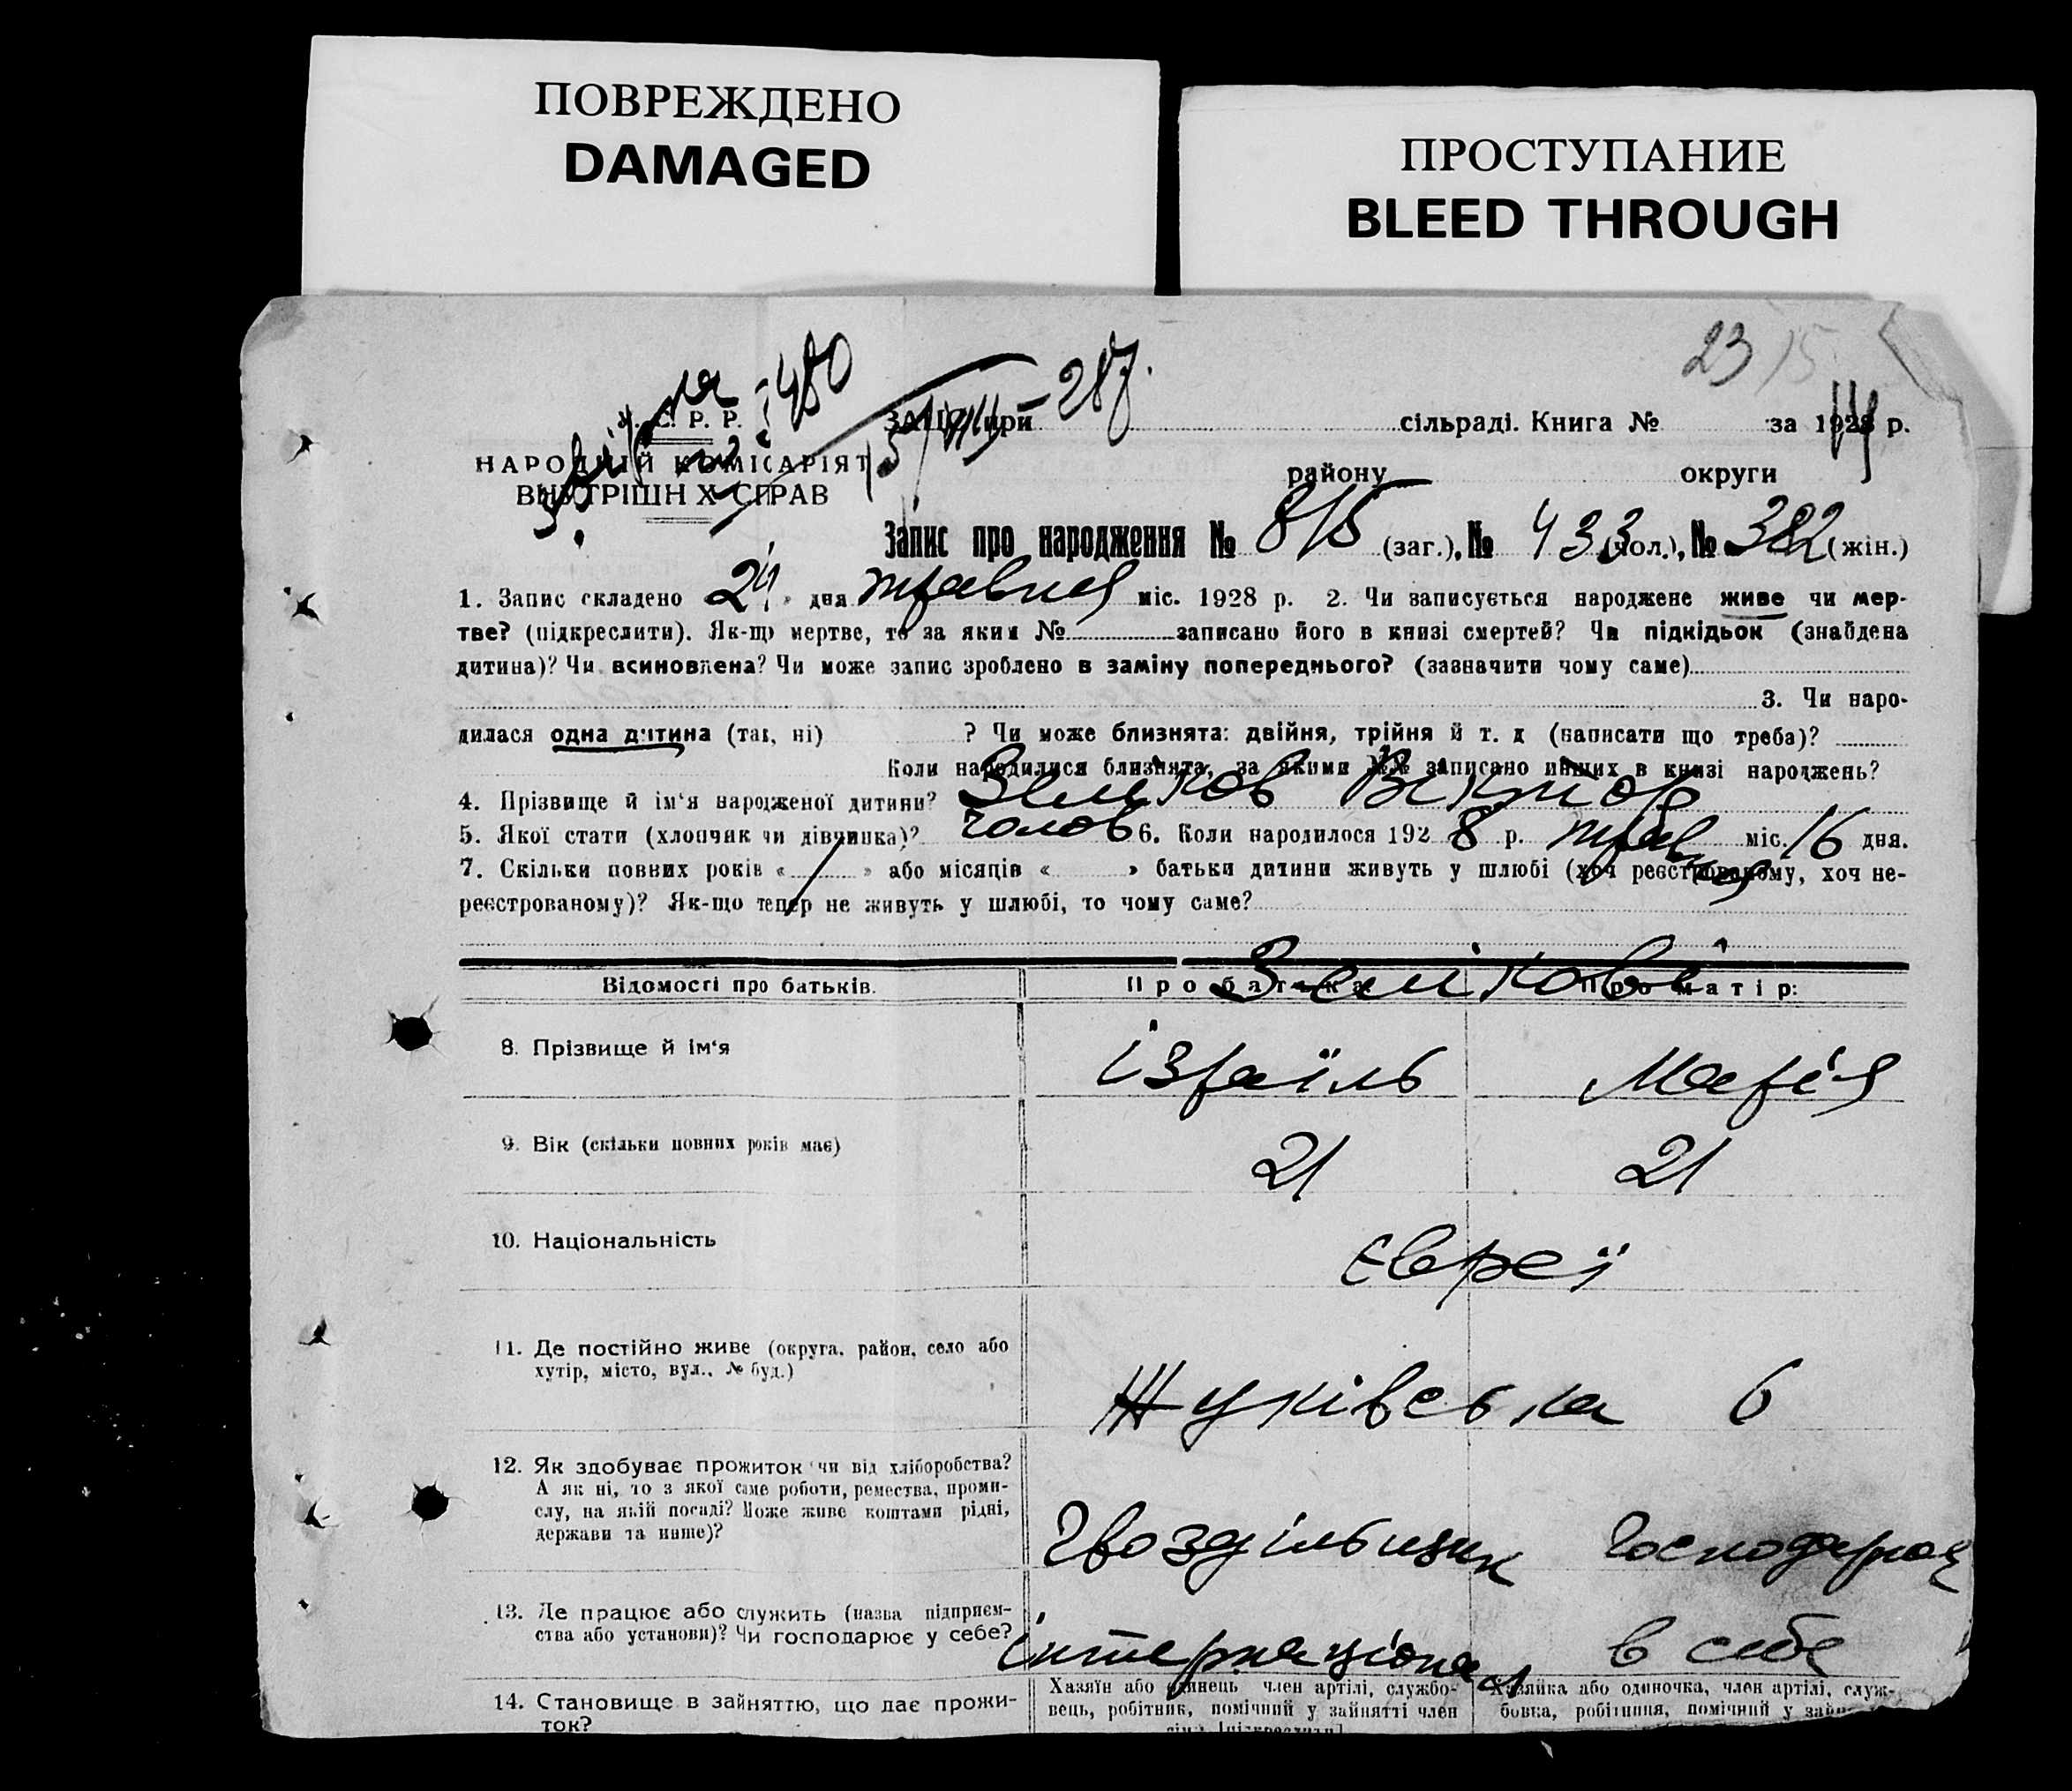 ПОВРЕЖДЕНО
DAMAGED
ПРОСТУПАНИЕ
BLEED THROUGH
23
480
287.
У. С. Р. Р.
ЗАГС при сільраді. Книга № за 1928 р.
НАРОДНІЙ КОМІСАРІЯТ
ВНУТРІШНІХ СПРАВ
району округи
Запис про народження № 815 (заг.), № 433 (чол.), № 382 (жін.)
1. Запис складено 24 » дня травня міс. 1928 р. 2. Чи записується народжене живе чи мер-
тве? (підкреслити). Як-що мертве, то за яким № записано його в книзі смертей? Чи підкідьок (знайдена
дитина)? Чи всиновлена? Чи може запис зроблено в заміну попереднього? (зазначити чому саме)
3. Чи наро-
дилася одна дитина (так, ні) ? Чи може близнята: двійня, трійня й т. д (написати що треба)?
Коли народилися близнята, за якими №№ записано инших в книзі народжень?
4. Прізвище й ім'я народженої дитини? Зеліков Віктор
5. Якої стати (хлопчик чи дівчинка)? чолов 6. Коли народилося 1928 р. травня міс. 16 дня.
7. Скільки повних років « 1 » або місяців « » батьки дитини живуть у шлюбі (хоч реєстрованому, хоч не-
реєстрованому)? Як-що тепер не живуть у шлюбі, то чому саме?
Зелікові
Відомості про батьків. Про батька Про матір:
8. Прізвище й ім'я Ізраїль Марія
9. Вік (скільки повних років має) 21 21
10. Національність Євреї
11. Де постійно живе (округа, район, село або
хутір, місто, вул., № буд.) Жуківська 6
12. Як здобуває прожиток чи від хліборобства?
А як ні, то з якої саме роботи, ремества, проми-
слу, на якій посаді? Може живе коштами рідні,
держави та инше)? Гвоздільщик Господарює
13. Де працює або служить (назва підприєм-
ства або установи)? Чи господарює у себе? Інтернаціонал в себе
14. Становище в зайняттю, що дає прожи-
ток?
Хазяїн або одинець член артілі, службо-
вець, робітник, помічний у зайнятті член
Хазяйка або одиночка, член артілі, служ-
бовка, робітниця, помічний у